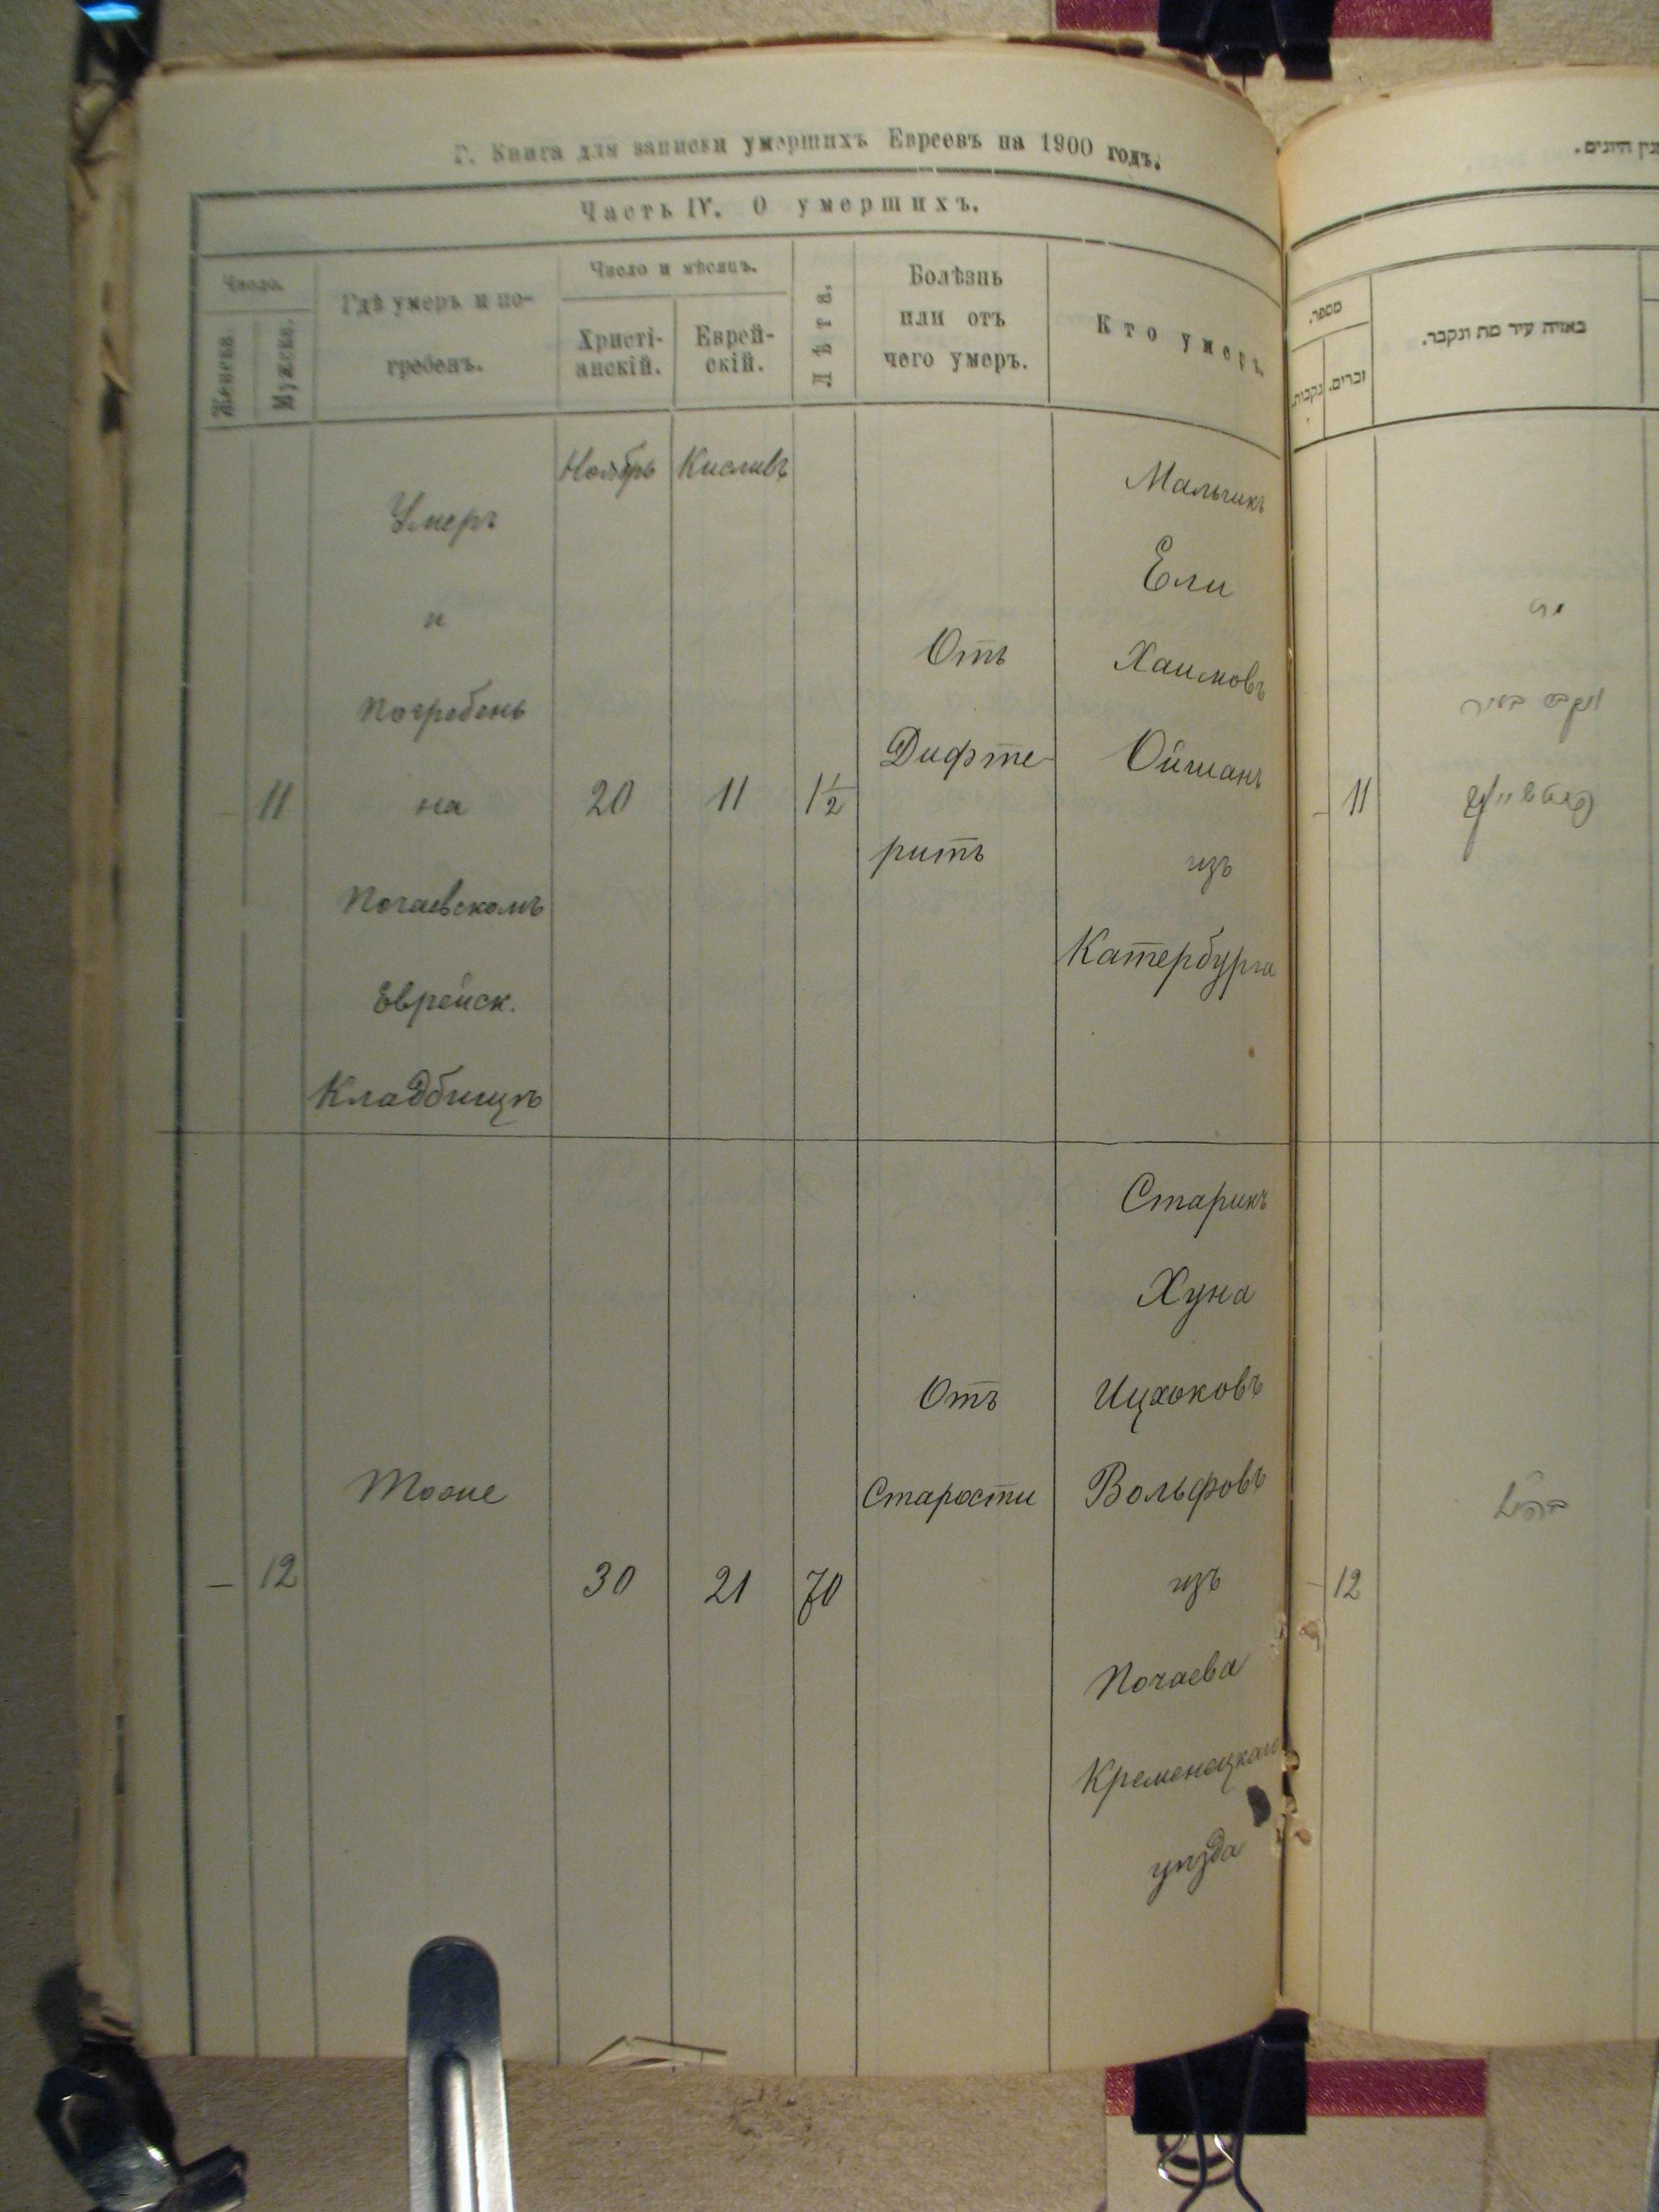 Г. Книга для записки умершихъ Евреевъ на 1900 годъ.
Часть IV. О умершихъ.
Число.
Женска.
Мужска.
Гдѣ умеръ и по-
гребенъ.
Число и мѣсяцъ.
Христі-
анскій.
Еврей-
скій.
Лѣта.
Болѣзнь
или отъ
чего умеръ.
Кто умеръ.
Ноябрь
Кисливъ
Умеръ
и
Погребенъ
на
Почаевскомъ
Еврейск.
Кладбищѣ
—
11
20
11
1½
Отъ
Дифте-
ритъ
Мальчикъ
Ели
Хаимовъ
изъ
Катербурга
—
12
Тоже
30
21
70
Отъ
Старости
Старикъ
Хуна
Ицхоковъ
Вольфовъ
изъ
Почаева
Кременецкаго
уѣзда
מספר.
נקבות.
זכרים.
באיזה עיר מת ונקבר.
11
12